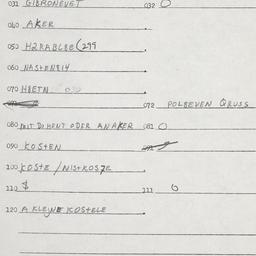 031 GIBRONEVET 032 O
040 AKER
050 H2RABLBE (299
060 NASTENBIH
070 HBETN 030
072 POLBEVEN QRUSS
080 MIT DEMONT ODER ANAKER 081 O
090 KOSTEN
100 KOSTE / NISTKOSZE
110 $ 111 O
120 A KLEYNE KOSTELE